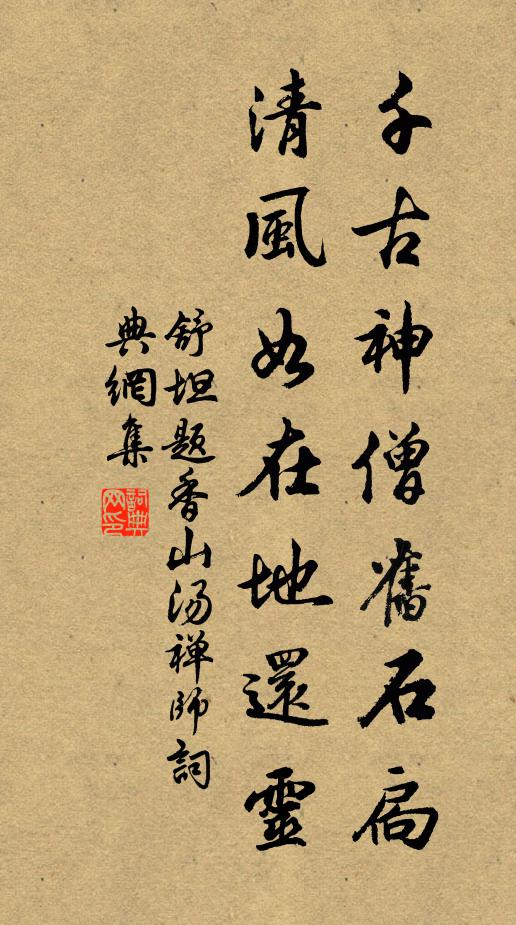 千古神僧舊石扃
清風如在地還靈
舒坦題香山湯禅師詞
典網集
詞典網印